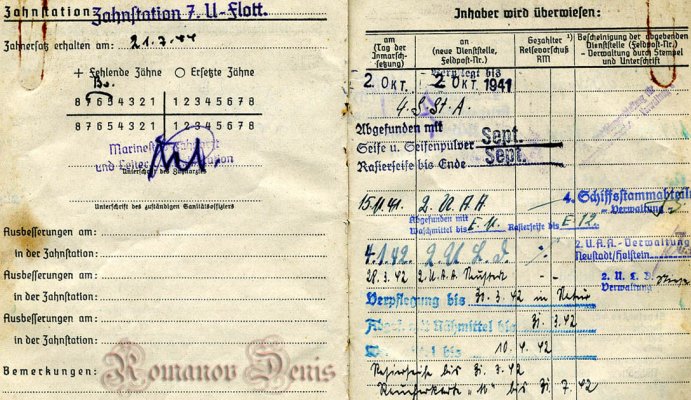 Zahnstation Zahnstation 7. U-Flott.
Zahnersatz erhalten am: 21.7.44
+ Fehlende Zähne ○ Ersetzte Zähne
8 7 6 5 4 3 2 1 1 2 3 4 5 6 7 8
8 7 6 5 4 3 2 1 1 2 3 4 5 6 7 8
und Leiter
Unterschrift des Zahnarztes
Unterschrift des zuständigen Sanitätsoffiziers
Ausbesserungen am:
in der Zahnstation:
Ausbesserungen am:
in der Zahnstation:
Ausbesserungen am:
in der Zahnstation:
Bemerkungen:
Romanov Denis
Inhaber wird überwiesen:
am
(Tag der Inmarsch-
setzung)
an
(neue Dienststelle,
Feldpost-Nr.)
Gezahlter 1)
Reisevorschuß
RM
Bescheinigung der abgebenden
Dienststelle (Feldpost-Nr.)
- Verwaltung durch Stempel
und Unterschrift
Verpflegt bis
2. OKT. 2 OKT 1941
4. S. St. A.
Abgefunden mit
Seife u. Seifenpulver Sept.
Rasierseife bis Ende Sept.
15.11.41. 2. U.A.A. 4. Schiffsstammabteilung
- Verwaltung -
Abgefunden mit
Waschmittel bis E. 11. Rasierseife bis E. 12.
4.1.42. 2. U. L. D. 2. U.A.A. - Verwaltung
Neustadt/Holstein
28.3.42 2. U.A.A. Neustadt - - 2. U. L. D.
Verwaltung
Verpflegung bis 31.3.42 in Natur
Abgef. mit Nähmittel bis 31.3.42
bis 10.4.42
Rasierseife bis 31.3.42
Raucherkarte "M" bis 31.7.42